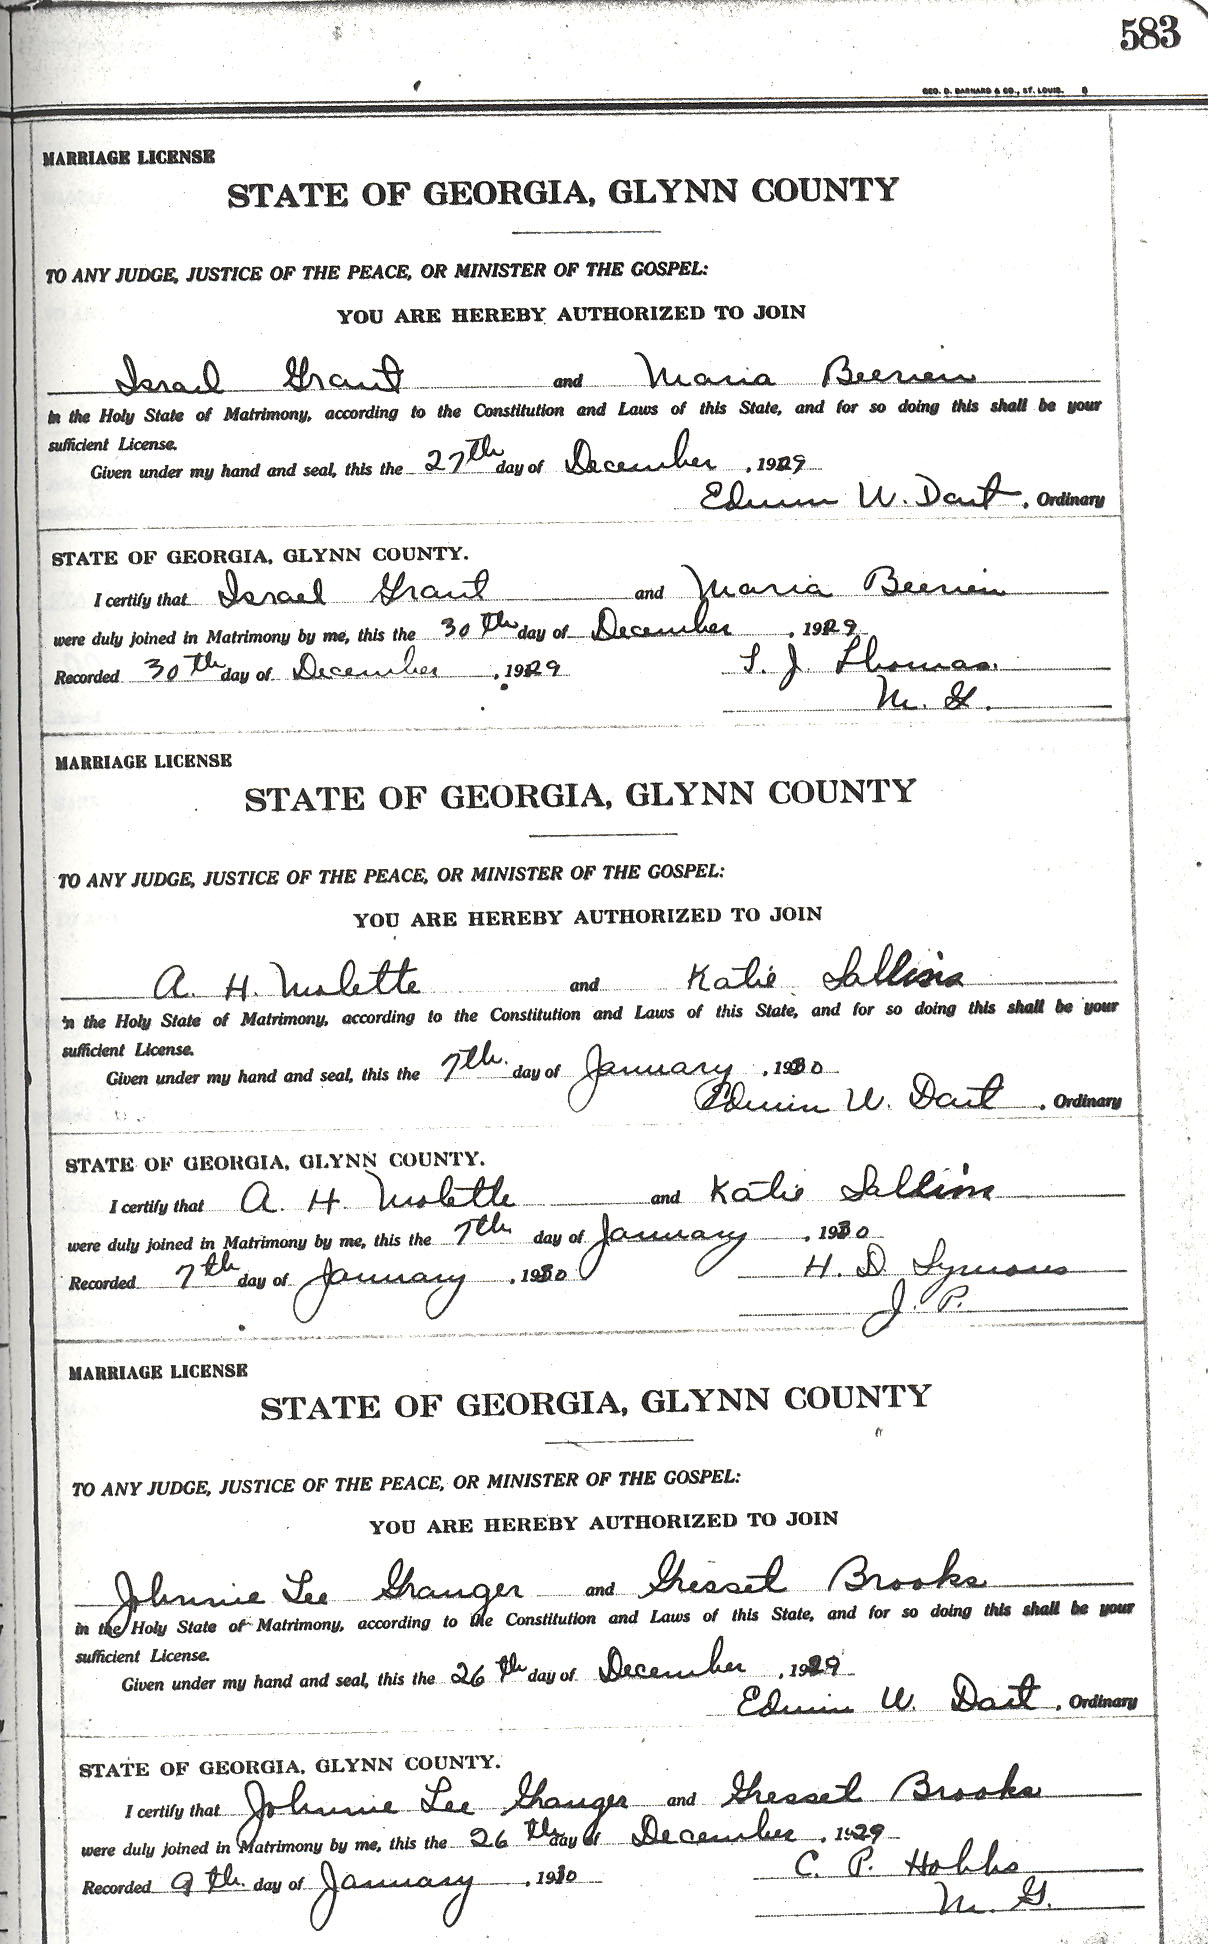 583
GEO. D. BARNARD & CO., ST. LOUIS. 8
MARRIAGE LICENSE
STATE OF GEORGIA, GLYNN COUNTY
TO ANY JUDGE, JUSTICE OF THE PEACE, OR MINISTER OF THE GOSPEL:
YOU ARE HEREBY AUTHORIZED TO JOIN
Israel Grant and Maria Beerien
in the Holy State of Matrimony, according to the Constitution and Laws of this State, and for so doing this shall be your
sufficient License.
Given under my hand and seal, this the 27th day of December, 1929
Edwin W. Dart, Ordinary
STATE OF GEORGIA, GLYNN COUNTY.
I certify that Israel Grant and Maria Beerien
were duly joined in Matrimony by me, this the 30th day of December, 1929
Recorded 30th day of December, 1929 S. J. Thomas.
M. G.
MARRIAGE LICENSE
STATE OF GEORGIA, GLYNN COUNTY
TO ANY JUDGE, JUSTICE OF THE PEACE, OR MINISTER OF THE GOSPEL:
YOU ARE HEREBY AUTHORIZED TO JOIN
A. H. Molette and Katie Sallins
in the Holy State of Matrimony, according to the Constitution and Laws of this State, and for so doing this shall be your
sufficient License.
Given under my hand and seal, this the 7th. day of January, 1930
Edwin W. Dart, Ordinary
STATE OF GEORGIA, GLYNN COUNTY.
I certify that A. H. Molette and Katie Sallins
were duly joined in Matrimony by me, this the 7th day of January, 1930
Recorded 7th day of January, 1930 H. D. Symons
J. P.
MARRIAGE LICENSE
STATE OF GEORGIA, GLYNN COUNTY
TO ANY JUDGE, JUSTICE OF THE PEACE, OR MINISTER OF THE GOSPEL:
YOU ARE HEREBY AUTHORIZED TO JOIN
Johnnie Lee Granger and Gresset Brooks
in the Holy State of Matrimony, according to the Constitution and Laws of this State, and for so doing this shall be your
sufficient License.
Given under my hand and seal, this the 26th day of December, 1929
Edwin W. Dart, Ordinary
STATE OF GEORGIA, GLYNN COUNTY.
I certify that Johnnie Lee Granger and Gresset Brooks
were duly joined in Matrimony by me, this the 26th day of December, 1929
Recorded 9th. day of January, 1930 C. P. Hobbs
M. G.